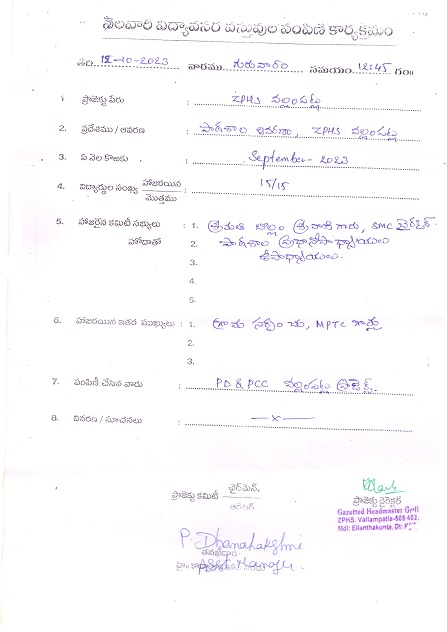 నెలవారి విద్యావసర వస్తువుల పంపిణి కార్యక్రమం
తేది 12-10-2023 వారము గురువారం సమయం 12:45 గం॥
1. ప్రాజెక్టు పేరు : ZPHS వల్లంపట్ల
2. ప్రదేశము / ఆవరణ : పాఠశాల ఆవరణ, ZPHS వల్లంపట్ల
3. ఏ నెల కొఱకు : September- 2023
4. విద్యార్థుల సంఖ్య హాజరయిన / మొత్తము : 15/15
5. హాజరైన కమిటీ సభ్యులు : 1. శ్రీమతి గారు, SMC చైర్మన్
హోదాతో 2. పాఠశాల ప్రధానోపాధ్యాయులు
3. ఉపాధ్యాయులు.
4.
5.
6. హాజరయిన ఇతర ముఖ్యులు : 1. గ్రామ సర్పంచు, MPTC గార్లు
2.
3.
7. పంపిణీ చేసిన వారు : PD & PCC వల్లంపట్ల ప్రాజెక్ట్.
8. వివరణ / సూచనలు : —x—
ప్రాజెక్టు కమిటీ చైర్‌మెన్,
ప్రాజెక్టు డైరెక్టర్
Gazetted Headmaster Gr.II
ZPHS. Vallampatla-505 402.
Mdl: Ellanthakunta, Dt:
P. Dhanalakshmi